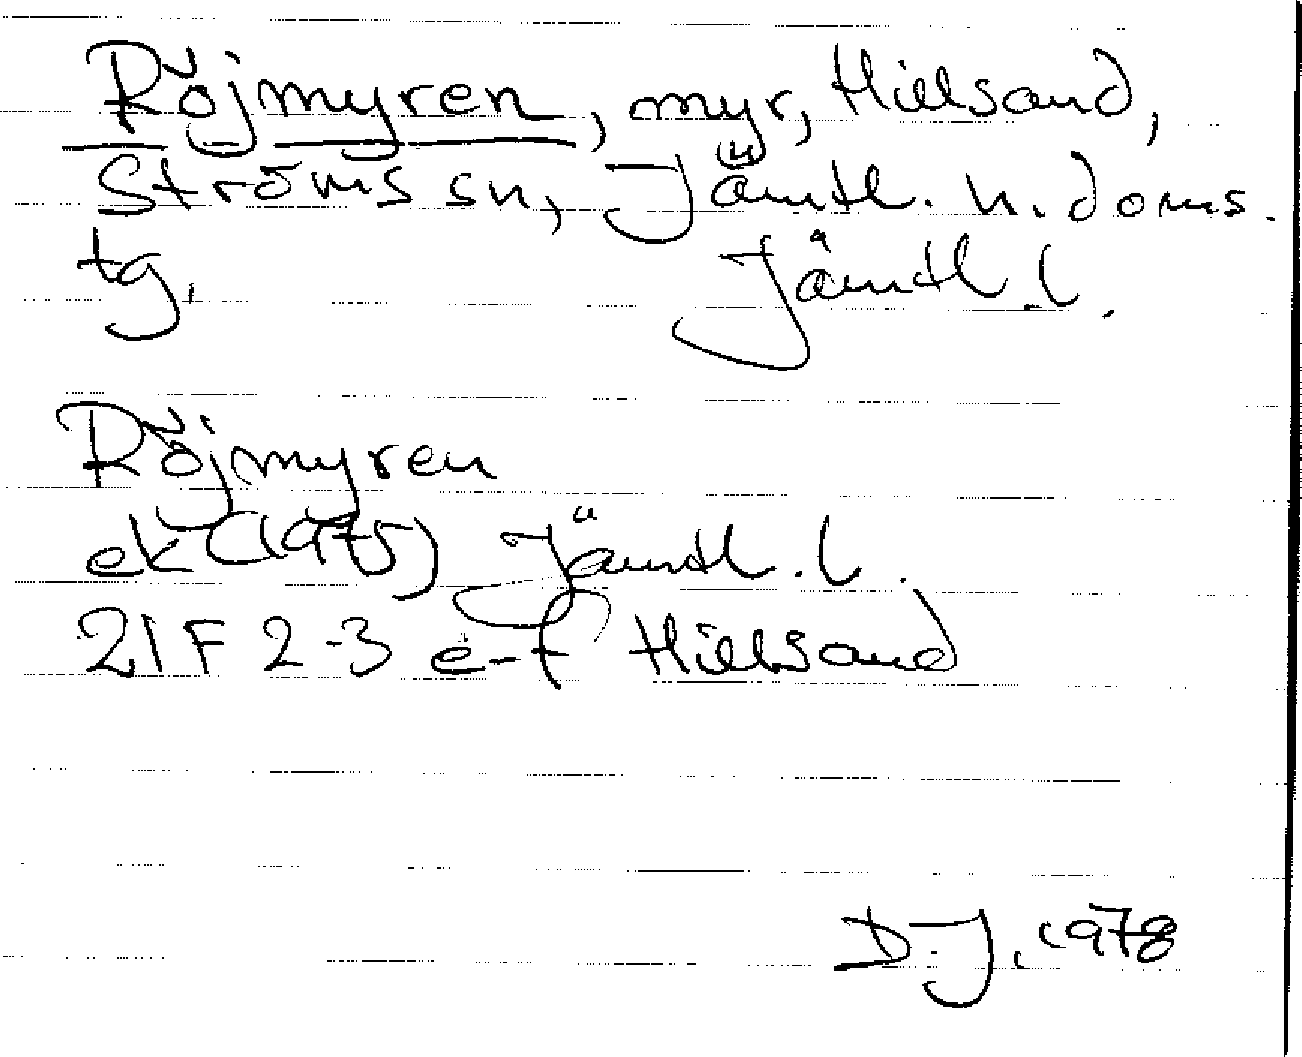 Röjmyren, myr, Hillsand,
Ströms sn, Jämtl. n. doms.
tg. Jämtl. l.
Röjmyren
ek (1975) Jämtl. l.
21F 2-3 e-f Hillsand
D.J. 1978